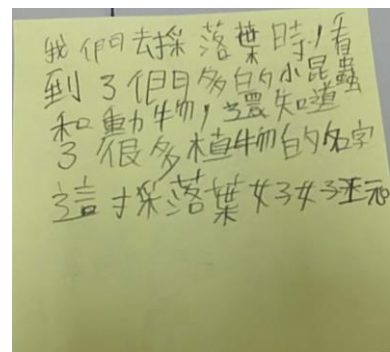 我們去採落葉時,看
到了們多的小昆蟲
和動物,還知道
了很多植物的名字
這才採落葉好好玩